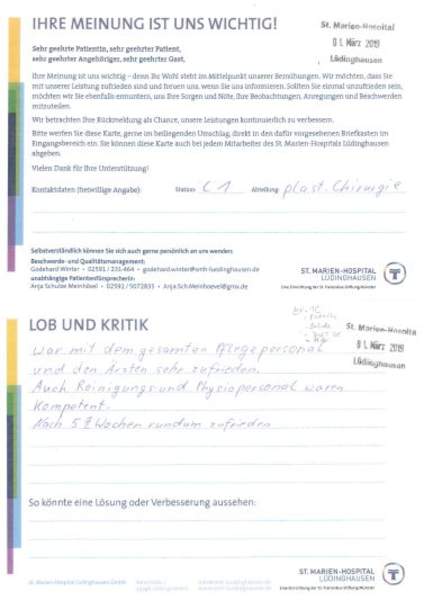 IHRE MEINUNG IST UNS WICHTIG!
St. Marien-Hospital
01. März 2019
Lüdinghausen
Sehr geehrte Patientin, sehr geehrter Patient,
sehr geehrter Angehöriger, sehr geehrter Gast,
Ihre Meinung ist uns wichtig – denn Ihr Wohl steht im Mittelpunkt unserer Bemühungen. Wir möchten, dass Sie
mit unserer Leistung zufrieden sind und freuen uns, wenn Sie uns informieren. Sollten Sie einmal unzufrieden sein,
möchten wir Sie ebenfalls ermuntern, uns Ihre Sorgen und Nöte, Ihre Beobachtungen, Anregungen und Beschwerden
mitzuteilen.
Wir betrachten Ihre Rückmeldung als Chance, unsere Leistungen kontinuierlich zu verbessern.
Bitte werfen Sie diese Karte, gerne im beiliegenden Umschlag, direkt in den dafür vorgesehenen Briefkasten im
Eingangsbereich ein. Sie können diese Karte auch bei jedem Mitarbeiter des St. Marien-Hospitals Lüdinghausen
abgeben.
Vielen Dank für Ihre Unterstützung!
Kontaktdaten (freiwillige Angabe): Station: C1 Abteilung: plast. Chirurgie
Selbstverständlich können Sie sich auch gerne persönlich an uns wenden
Beschwerde- und Qualitätsmanagement:
Godehard Winter • 02591 / 231-464 • godehard.winter@smh-luedinghausen.de
unabhängige Patientenfürsprecherin
Anja Schulze Meinhövel • 02592 / 5072833 • Anja.Sch.Meinhoevel@gmx.de
ST. MARIEN-HOSPITAL
LÜDINGHAUSEN
Eine Einrichtung der St. Franziskus-Stiftung Münster
LOB UND KRITIK
St. Marien-Hospital
01. März 2019
Lüdinghausen
war mit dem gesamten Pflegepersonal
und den Ärzten sehr zufrieden.
Auch Reinigungs und Physiopersonal waren
Kompetent.
Nach 5 Wochen rundum zufrieden
So könnte eine Lösung oder Verbesserung aussehen:
St. Marien-Hospital Lüdinghausen GmbH
ST. MARIEN-HOSPITAL
LÜDINGHAUSEN
Eine Einrichtung der St. Franziskus-Stiftung Münster